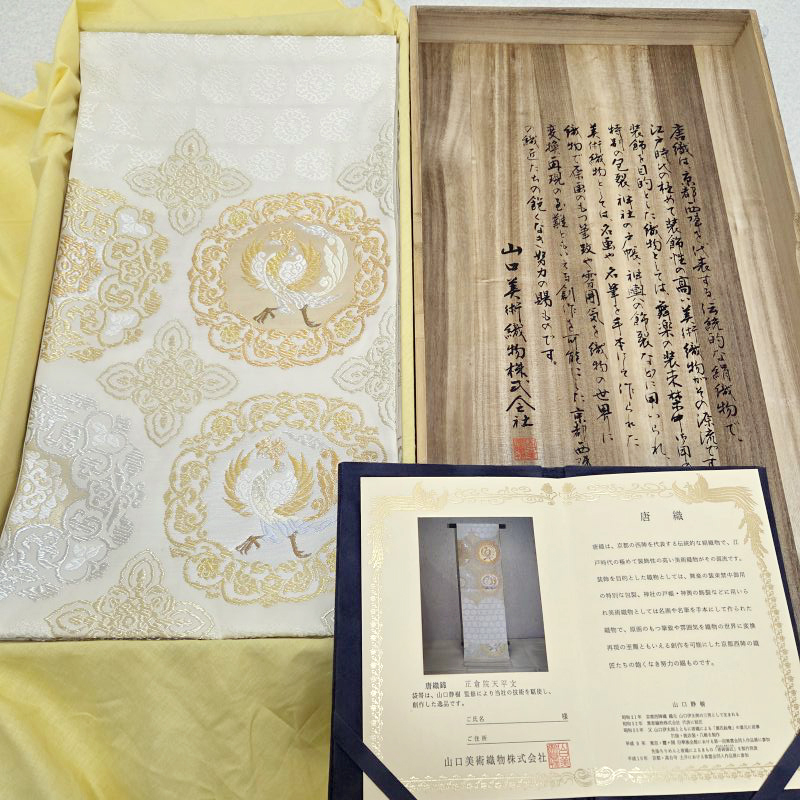 唐織は、京都西陣を代表する伝統的な絹織物で、
江戸時代の極めて装飾性の高い美術織物がその源流です
装飾を目的とした織物としては、舞楽の装束禁中御用
特別の包裂、神社の戸帳、神輿の飾裂などに用いられ、
美術織物としては、名画や名筆を手本にして作られた
織物で、原画のもつ筆致や雰囲気を織物の世界に
変換再現の至難ともいえる創作を可能にした京都西陣
の織匠たちの飽くなき努力の賜ものです。
山口美術織物株式会社
唐織錦 正倉院天平文
袋帯は、山口静樹 監修により当社の技術を駆使し、
創作した逸品です。
ご氏名 様
ご住所
山口美術織物株式会社
唐 織
唐織は、京都の西陣を代表する伝統的な絹織物で、江
戸時代の極めて装飾性の高い美術織物がその源流です。
装飾を目的とした織物としては、舞楽の装束禁中御用
の特別な包裂、神社の戸帳・神輿の飾裂などに用いら
れ美術織物としては名画や名筆を手本にして作られた
織物で、原画のもつ筆致や雰囲気を織物の世界に変換
再現の至難ともいえる創作を可能にした京都西陣の織
匠たちの飽くなき努力の賜ものです。
山 口 静 樹